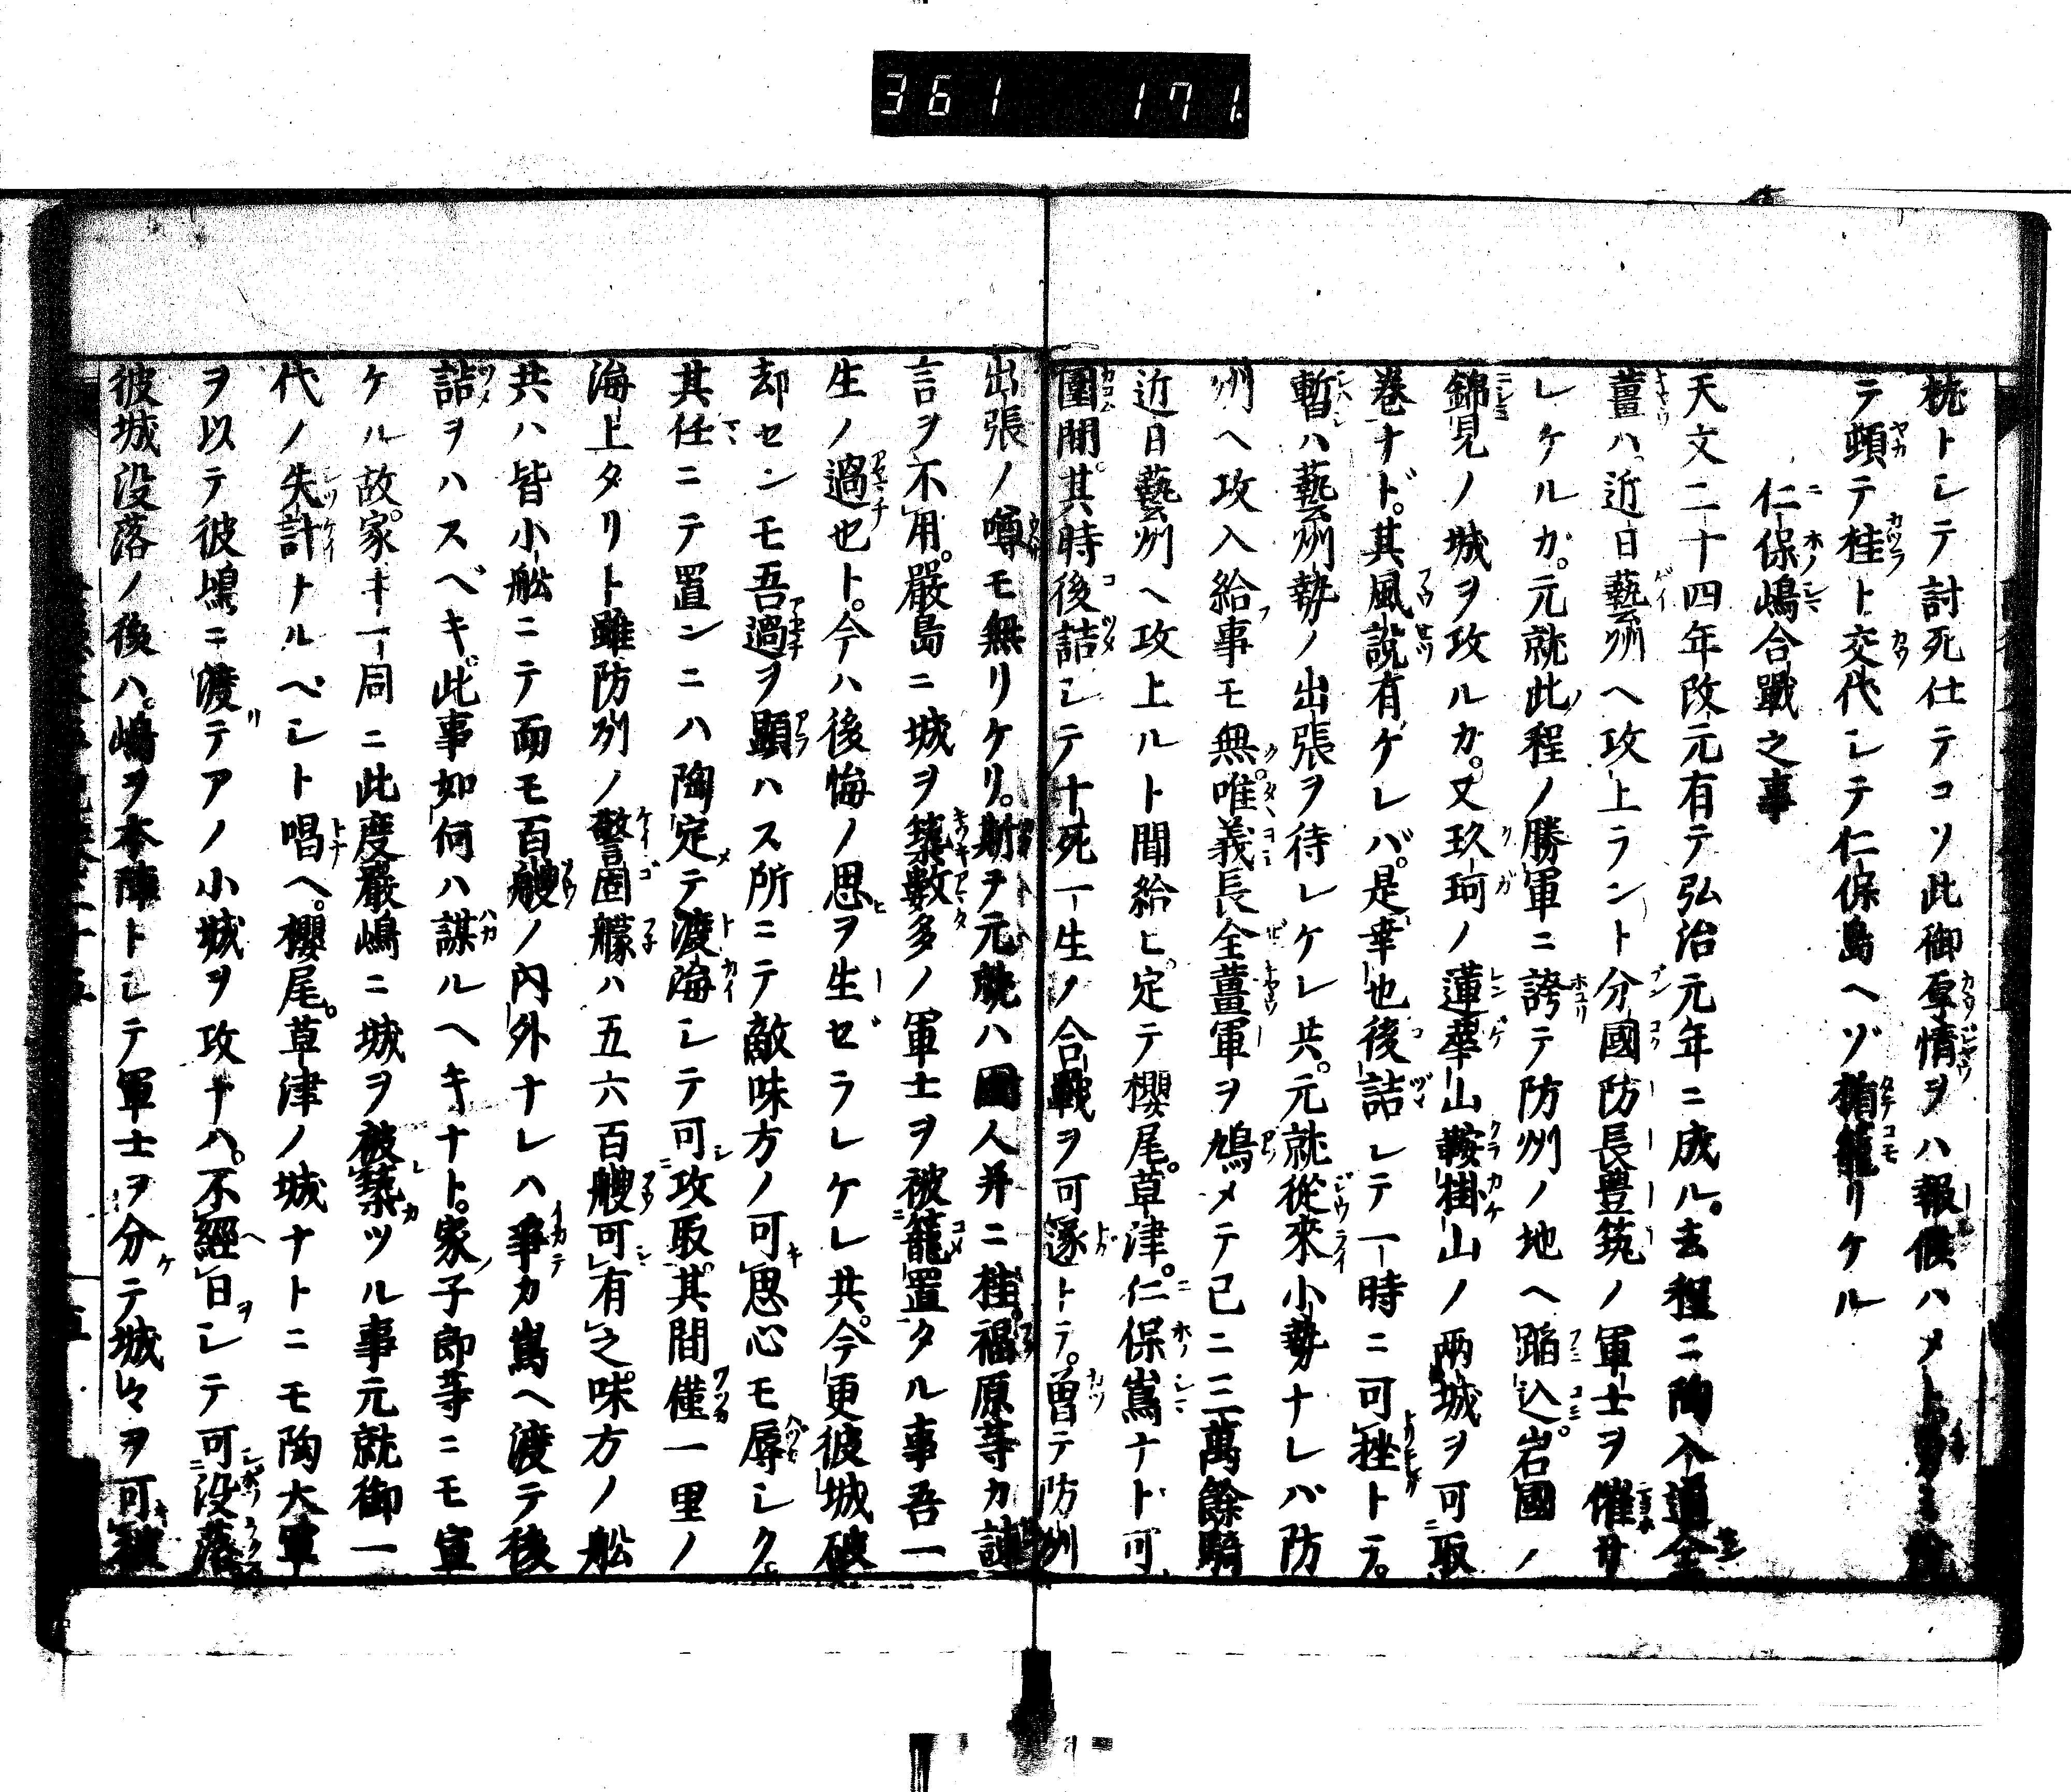 361 171.
枕トシテ討死仕テコソ此御厚情ヲハ報候ハメト
テ頓テ桂ト交代シテ仁保島ヘゾ楯籠リケル
仁保嶋合戰之事
天文二十四年改元有テ弘治元年ニ成ル。去程ニ陶入道全
薑ハ近日藝州ヘ攻上ラント分國防長豊筑ノ軍士ヲ催サ
レケルカ。元就此程ノ勝軍ニ誇テ防州ノ地ヘ蹈込。岩國ノ
錦見ノ城ヲ攻ルカ。又玖珂ノ蓮華山鞍掛山ノ兩城ヲ可取
巻ナド。其風説有ケレバ。是幸也後詰シテ一時ニ可挫トテ。
暫ハ藝州勢ノ出張ヲ待レケレ共。元就從來小勢ナレバ防
州ヘ攻入給事モ無。唯義長全薑軍ヲ鳩メテ已ニ三萬餘騎
近日藝州ヘ攻上ルト聞給ヒ。定テ櫻尾。草津。仁保嶌ナト可
圍間。其時後詰シテ十死一生ノ合戰ヲ可遂トテ。曽テ防州
出張ノ噂モ無リケリ。斯ヲ元就ハ國人并ニ桂。福原等カ諌
言ヲ不用。嚴島ニ城ヲ築數多ノ軍士ヲ被籠置タル事吾一
生ノ過也ト。今ハ後悔ノ思ヲ生ゼラレケレ共。今更彼城破
却センモ吾過ヲ顯ハス所ニテ敵味方ノ可思心モ辱シク。
其任ニテ置ンニハ陶定テ渡海シテ可攻取。其間僅一里ノ
海上タリト雖防州ノ警固艨ハ五六百艘可有之。味方ノ舩
共ハ皆小舩ニテ而モ百艘ノ内外ナレハ爭カ嶌ヘ渡テ後
詰ヲハスベキ。此事如何ハ謀ルヘキナト。家子郎等ニモ宣
ケル故。家キ一同ニ此度嚴嶋ニ城ヲ被築ツル事元就御一
代ノ失計トルベシト唱ヘ。櫻尾。草津ノ城ナトニモ陶大軍
ヲ以テ彼嶋ニ渡テアノ小城ヲ攻ナハ。不經日シテ可没落
彼城没落ノ後ハ。嶋ヲ本陣トシテ軍士ヲ分テ城々ヲ可被